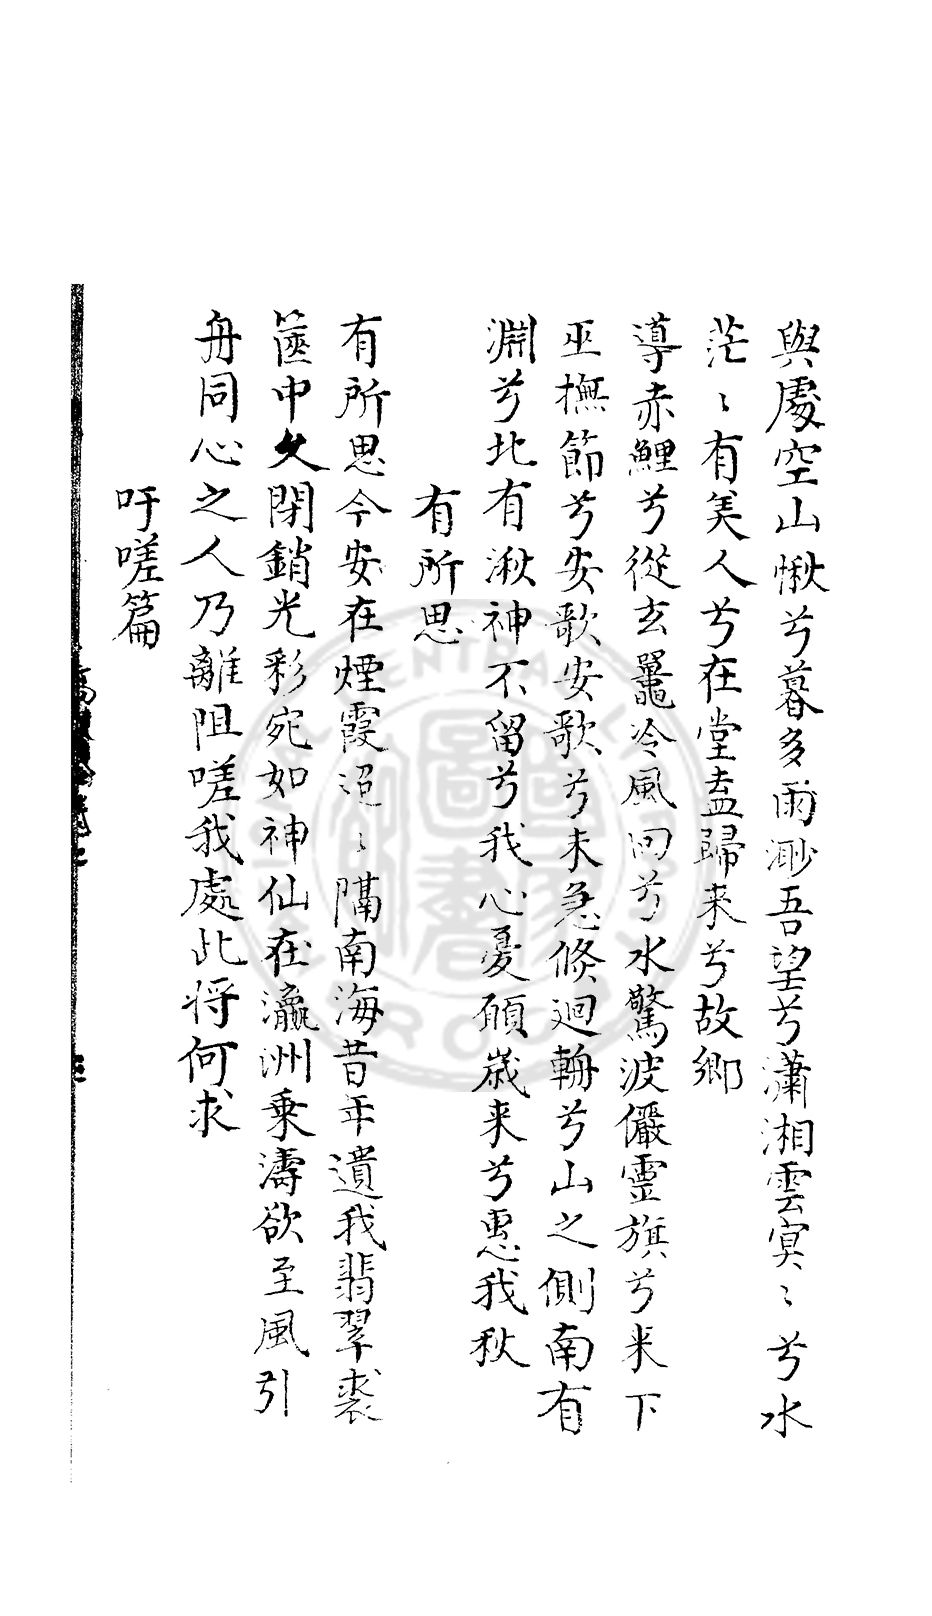 與處空山愀兮暮多雨渺吾望兮瀟湘雲冥〻兮水
茫〻有美人兮在堂盍歸来兮故鄉
導赤鯉兮從玄鼉冷風回兮水驚波儼靈旗兮来下
巫撫節兮安歌安歌兮未急倏迴輈兮山之側南有
淵兮北有湫神不留兮我心憂願歳来兮惠我秋
有所思
有所思今安在煙霞迢〻隔南海昔年遺我翡翠裘
篋中久閉銷光彩宛如神仙在瀛洲乗濤欲至風引
舟同心之人乃離阻嗟我處此将何求
吁嗟篇